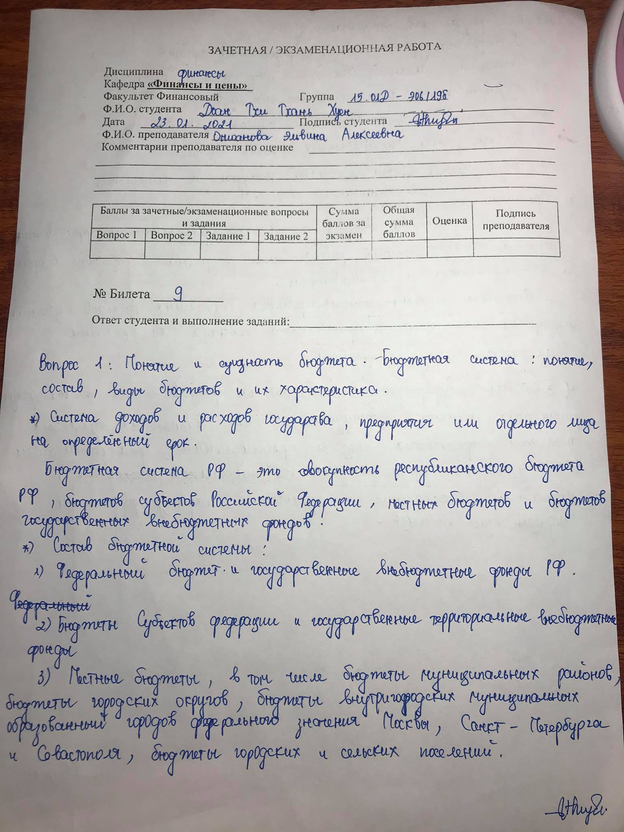 ЗАЧЕТНАЯ / ЭКЗАМЕНАЦИОННАЯ РАБОТА
Дисциплина финансы
Кафедра «Финансы и цены»
Факультет Финансовый Группа 15.01Д – 906/19б
Ф.И.О. студента Доан Тхи Тхань Хуен
Дата 23.01.2021 Подпись студента
Ф.И.О. преподавателя Элвина Алексеевна
Комментарии преподавателя по оценке
Баллы за зачетные/экзаменационные вопросы и задания
Сумма баллов за экзамен
Общая сумма баллов
Оценка
Подпись преподавателя
Вопрос 1 Вопрос 2 Задание 1 Задание 2
№ Билета 9
Ответ студента и выполнение заданий:
Вопрос 1: Понятие и сущность бюджета. Бюджетная система: понятие,
состав, виды бюджетов и их характеристика.
*) Система доходов и расходов государства, предприятия или отдельного лица
на определённый срок.
Бюджетная система РФ – это совокупность республиканского бюджета
РФ, бюджетов субъектов Российской Федерации, местных бюджетов и бюджетов
государственных внебюджетных фондов.
*) Состав бюджетной системы:
1) Федеральный бюджет и государственные внебюджетные фонды РФ.
Федеральный
2) Бюджеты Субъектов федерации и государственные территориальные внебюджетные
фонды
3) Местные бюджеты, в том числе бюджеты муниципальных районов,
бюджеты городских округов, бюджеты внутригородских муниципальных
образованный городов федерального значения Москвы, Санкт-Петербурга
и Севастополя, бюджеты городских и сельских поселений.